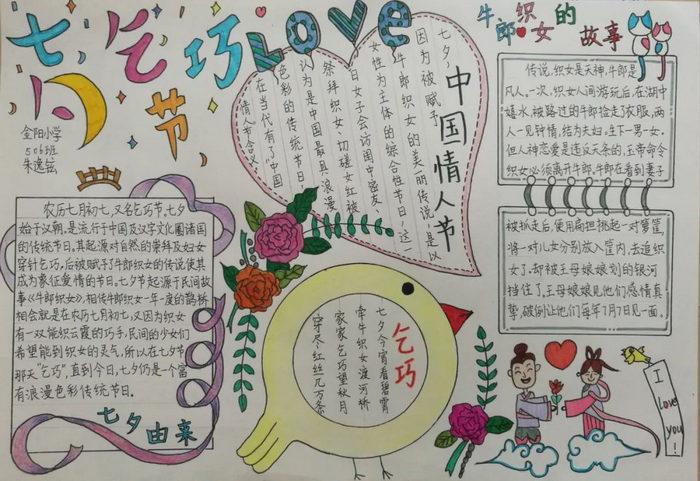 七夕
乞巧
节
LOVE
金阳小学
506班
朱逸铉
农历七月初七,又名乞巧节,七夕
始于汉朝,是流行于中国及汉字文化圈诸国
的传统节日,其起源对自然的崇拜及妇女
穿针乞巧,后被赋予了牛郎织女的传说使其
成为象征爱情的节日。七夕节起源于民间故
事《牛郎织女》,相传牛郎织女一年一度的鹊桥
相会就是在农历七月初七,又因为织女
有一双能织云霞的巧手,民间的少女们
希望能到织女的灵气,所以在七夕节
那天"乞巧",直到今日,七夕仍是一个富
有浪漫色彩传统节日。
七夕由来
中国情人节
七夕
因为被赋予
牛郎织女的美丽传说,是以
女性为主体的综合性节日,这一
日女子会访闺中密友
祭拜织女、切磋女红被
认为是中国最具浪漫
色彩的传统节日
在当代有了中国
情人节含义
乞巧
七夕今宵看碧霄
牵牛织女渡河桥
家家乞巧望秋月
穿尽红丝几万条
牛郎织女的故事
传说,织女是天神,牛郎是
凡人。一次,织女人间游玩后,在湖中
嬉水,被路过的牛郎捡走了衣服,两
人一见钟情,结为夫妇,生下一男一女。
但人神恋爱是违反天条的,玉帝命令
织女必须离开牛郎,牛郎在看到妻子
被抓走后,使用扁担挑起一对箩筐,
将一对儿女分别放入筐内,去追织
女了,却被王母娘娘划的银河
挡住了。王母娘娘见他们感情真
挚,破例让他们每年7月7日见一面。
I love you!